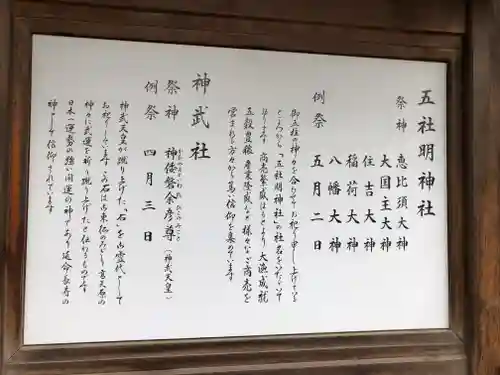 五社明神社
祭神
恵比須大神
大国主大神
住吉大神
稲荷大神
八幡大神
例祭 五月二日
御五柱の神々を合わせてお祀り申し上げている
ところから「五社明神社」の社名をいただいて
おります 商売繁盛はもとより 大漁成就
五穀豊穣 産業隆盛など 様々なご商売を
営まれる方々から篤い信仰を集めています
神武社
祭神 神倭磐余彦尊(神武天皇)
かむやまといわれ ひこのみこと
例祭 四月三日
神武天皇が蹴り上げた「石」を御霊代として
お祀りしています この石は御東征のみぎり 高天原の
神々に武運を祈り蹴り上げたと伝わるものです
日本一運勢の強い開運の神であり 延命長寿の
神として信仰されています